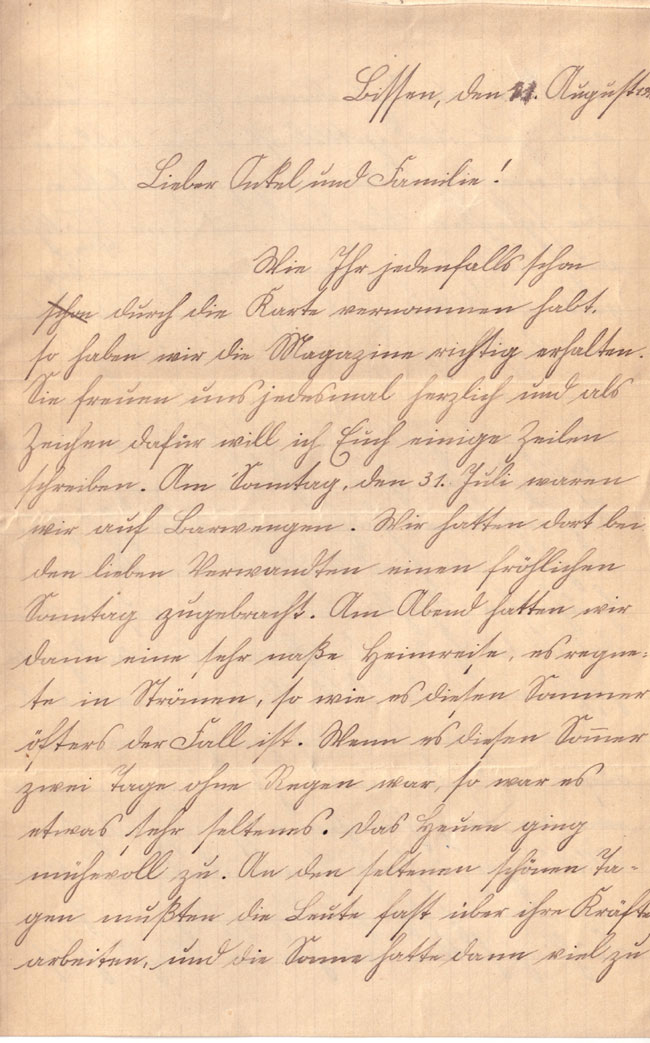 Bissen, den 11. August
Lieber Onkel und Familie!
Wie Ihr jedenfalls schon
schon durch die Karte vernommen habt,
so haben wir die Magazine richtig erhalten.
Sie freuen uns jedesmal herzlich und als
Zeichen dafür will ich Euch einige Zeilen
schreiben. Am Sonntag, den 31. Juli waren
wir auf Barwengen. Wir hatten dort bei
den lieben Verwandten einen fröhlichen
Sonntag zugebracht. Am Abend hatten wir
dann eine sehr naße Heimreise, es regne-
te in Strömen, so wie es diesen Sommer
öfters der Fall ist. Wenn es diesen Som̄er
zwei Tage ohne Regen war, so war es
etwas sehr seltenes. Das Heuen ging
mühevoll zu. An den seltenen schönen Ta-
gen mußten die Leute fast über ihre Kräfte
arbeiten, und die Sonne hatte dann viel zu